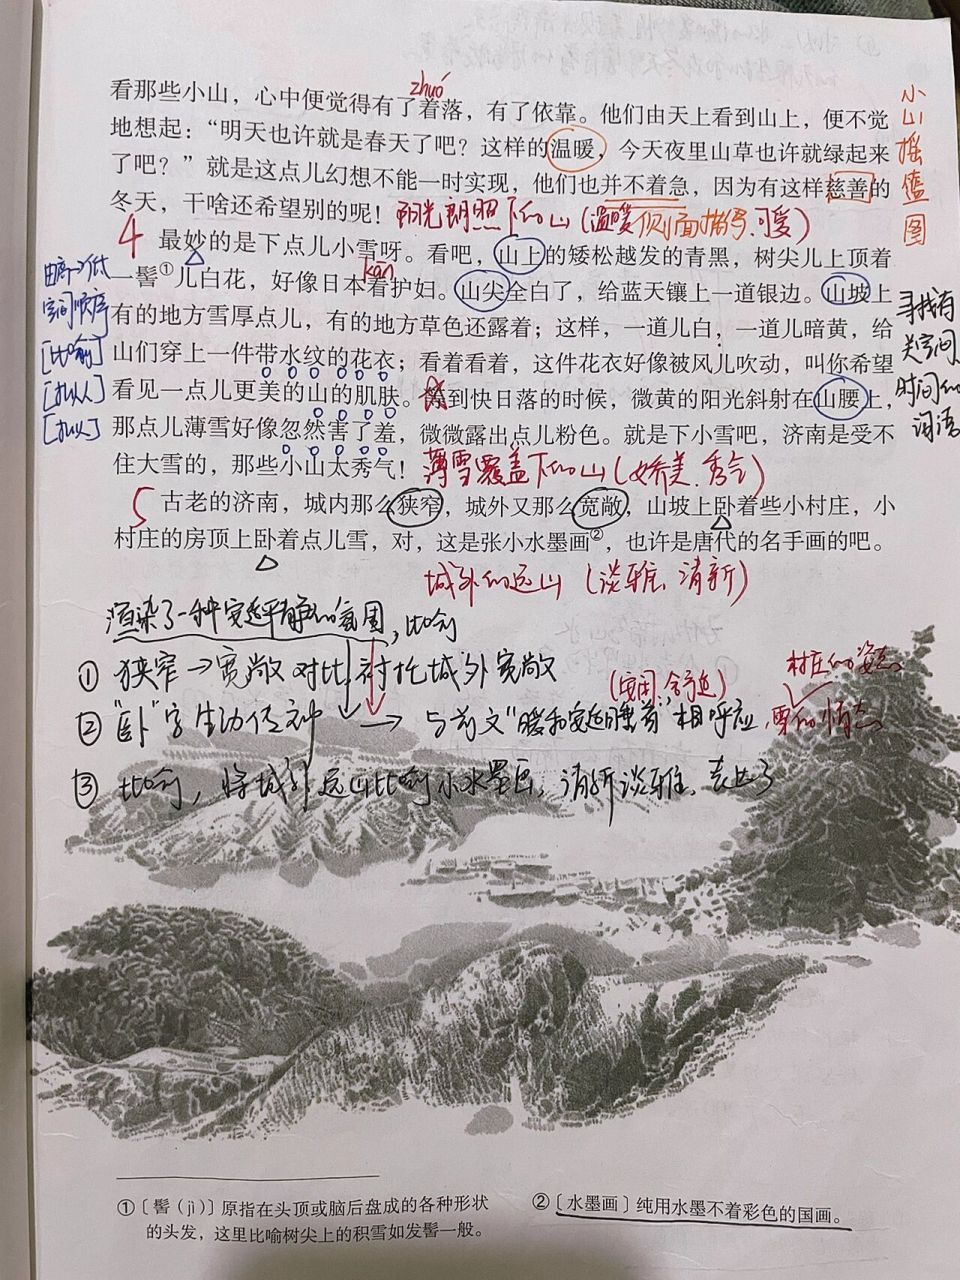 zhuó
看那些小山，心中便觉得有了着落，有了依靠。他们由天上看到山上，便不觉
地想起：“明天也许就是春天了吧？这样的温暖，今天夜里山草也许就绿起来
了吧？”就是这点儿幻想不能一时实现，他们也并不着急，因为有这样慈善的
冬天，干啥还希望别的呢！
阳光朗照下的山（温暖 侧面描写 可爱）
小山摇篮图
4
最妙的是下点儿小雪呀。看吧，山上的矮松越发的青黑，树尖儿上顶着
kān
一髻①儿白花，好像日本看护妇。山尖全白了，给蓝天镶上一道银边。山坡上
有的地方雪厚点儿，有的地方草色还露着；这样，一道儿白，一道儿暗黄，给
山们穿上一件带水纹的花衣；看着看着，这件花衣好像被风儿吹动，叫你希望
看见一点儿更美的山的肌肤。等到快日落的时候，微黄的阳光斜射在山腰上，
那点儿薄雪好像忽然害了羞，微微露出点儿粉色。就是下小雪吧，济南是受不
住大雪的，那些小山太秀气！
薄雪覆盖下的山（娇美、秀气）
由高→低
空间顺序
[比喻]
[拟人]
[拟人]
寻找有
关空间、
时间的
词语
5
古老的济南，城内那么狭窄，城外又那么宽敞，山坡上卧着些小村庄，小
村庄的房顶上卧着点儿雪，对，这是张小水墨画②，也许是唐代的名手画的吧。
城外的远山（淡雅、清新）
渲染了一种安适平静的氛围，比喻
① 狭窄→宽敞 对比 衬托城外宽敞
（安闲、舒适） 村庄的姿态
② “卧”字生动传神 → 与前文“暖和安适睡着”相呼应 雪的情态
③ 比喻，将城外远山比喻小水墨画，清新淡雅，表达了
①〔髻（jì）〕原指在头顶或脑后盘成的各种形状
的头发，这里比喻树尖上的积雪如发髻一般。
②〔水墨画〕纯用水墨不着彩色的国画。